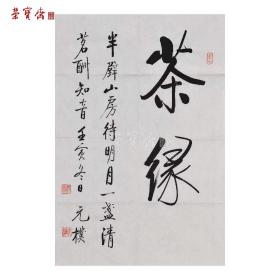 荣宝斋
茶缘
半壁山房待明月一盏清
茗酬知音壬寅冬日元朴